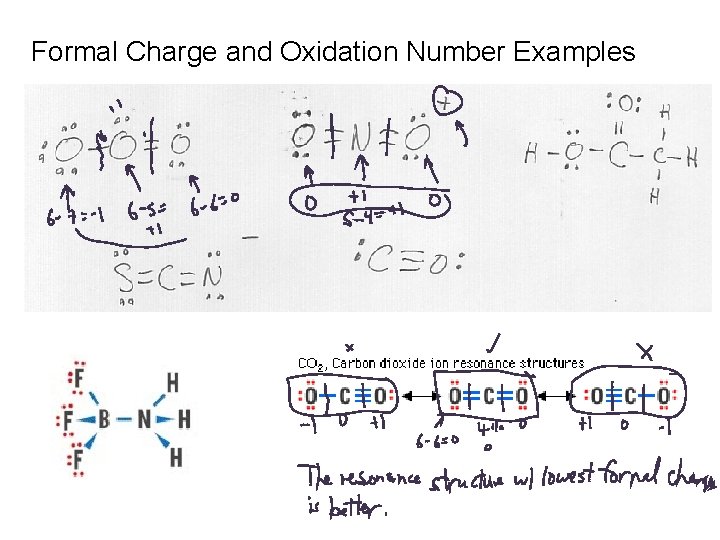 Formal Charge and Oxidation Number Examples
O O O
O N O +
:O:
H
H - O - C - C - H
H
6-7=-1 6-5= +1 6-6=0
0 +1 0
5-4=+1
S=C=N −
:C≡O:
x ✓ X
CO2, Carbon dioxide ion resonance structures
:F: H
:F - B - N - H
:F: H
:O - C ≡ O: ↔ O = C = O ↔ :O ≡ C - O:
-1 0 +1 6-6=0 4-4= 0 0 +1 0 -1
The resonance structure w/ lowest formal charge
is better.